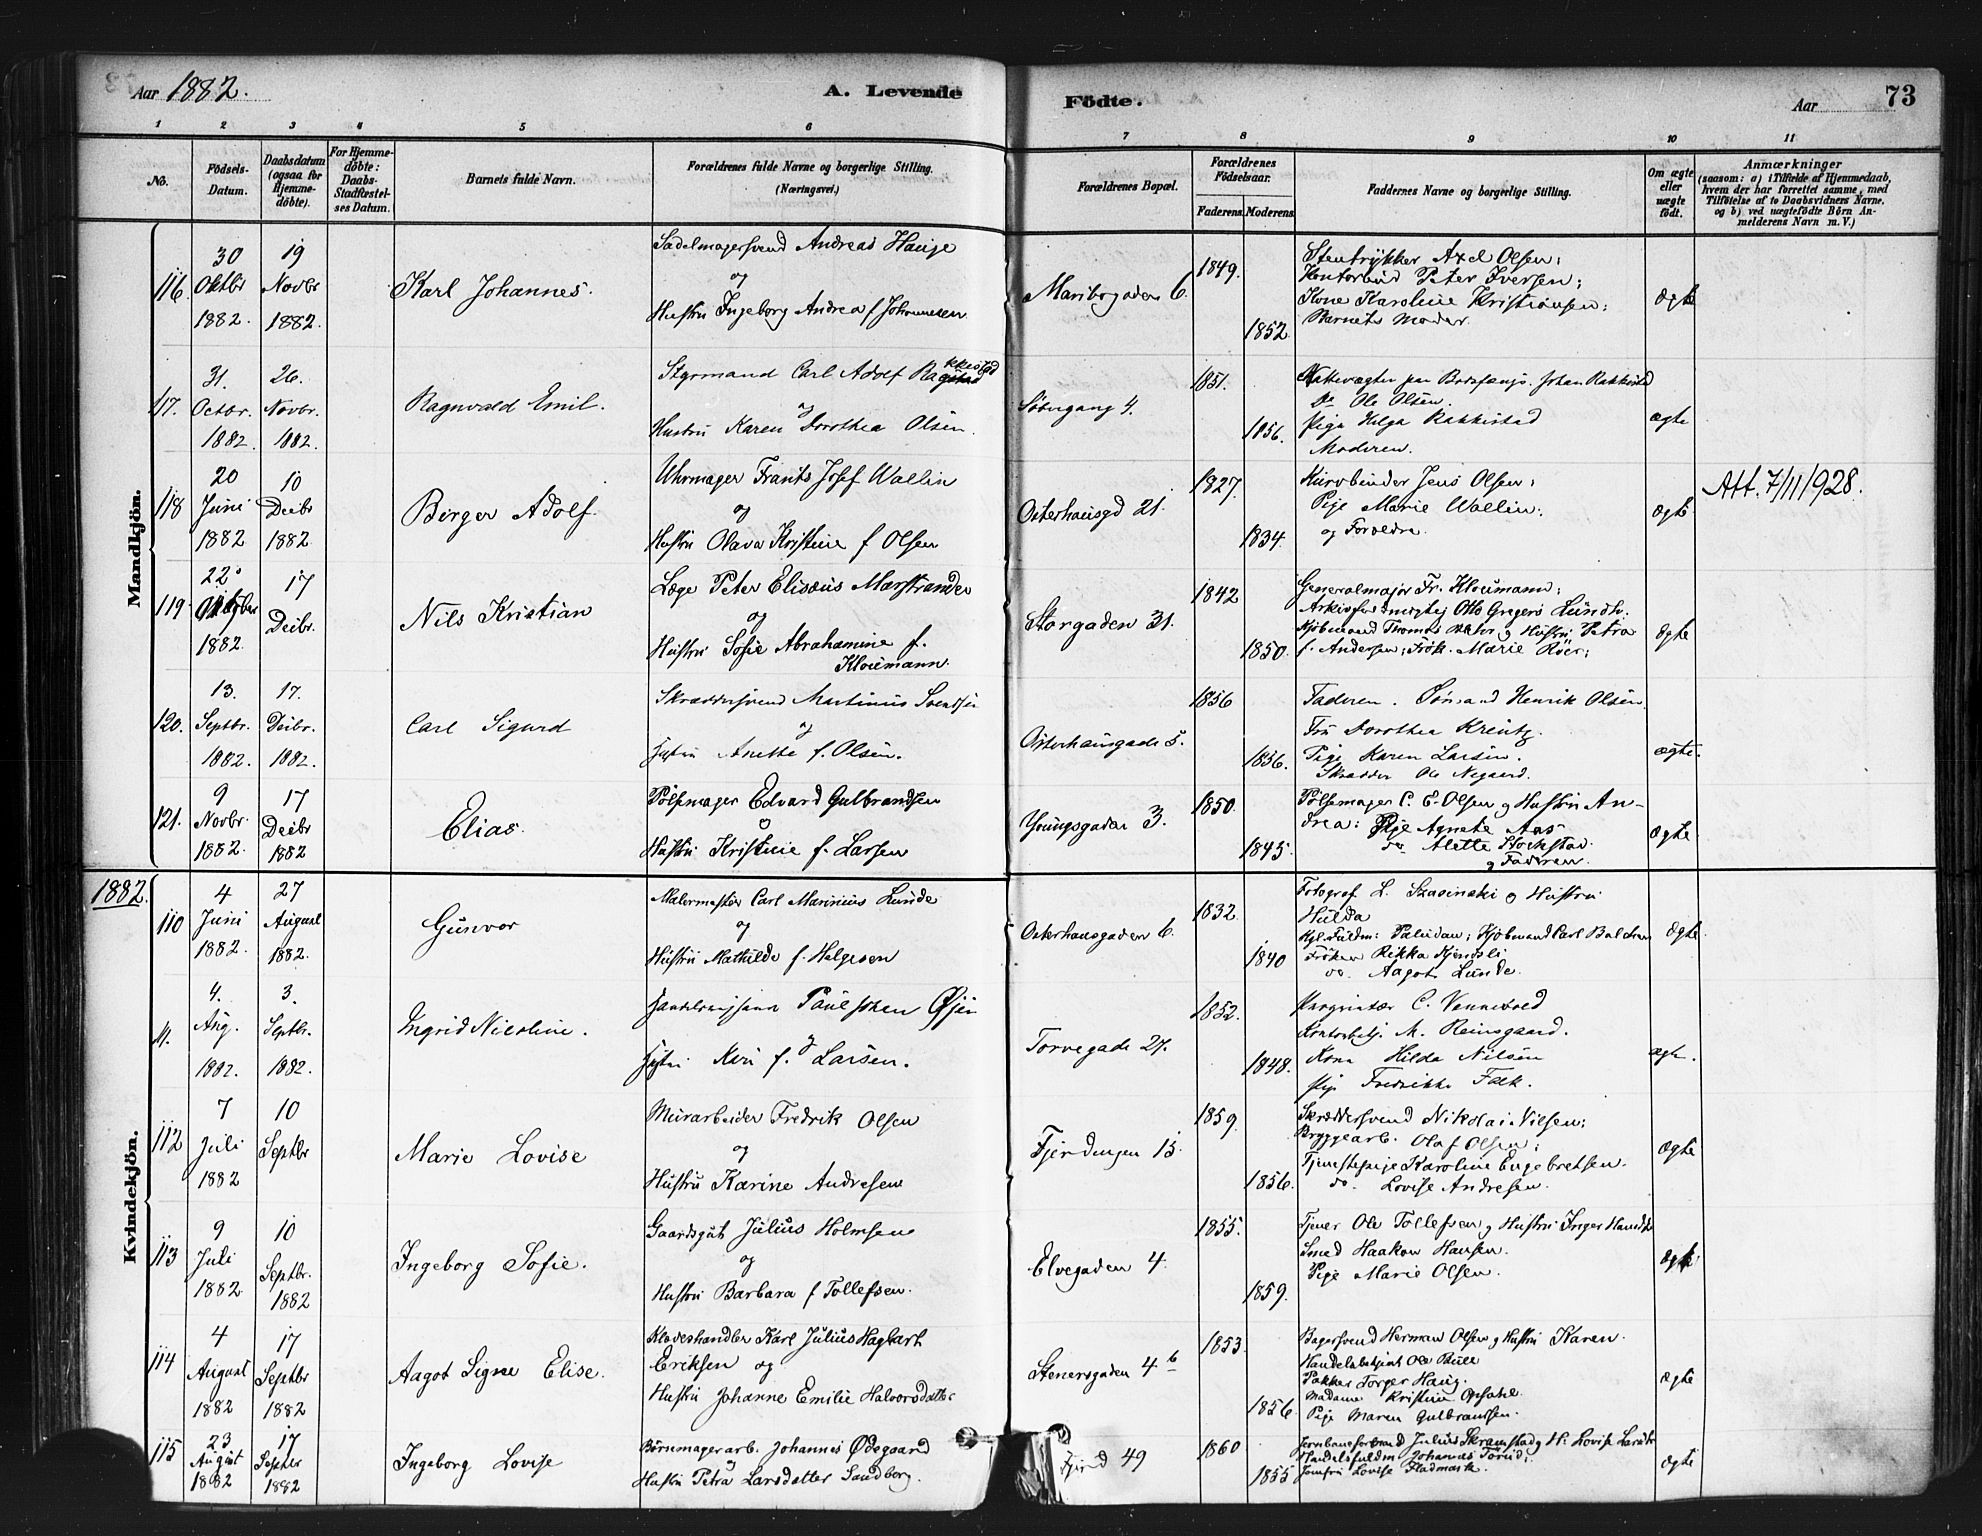 Aar 1882.
A. Levende
Födte.
Aar
73
1 2 3 4 5 6 7 8 9 10 11
No.
Födsels-Datum.
Daabsdatum (ogsaa for Hjemme-döbte).
For Hjemme-döbte: Daabs-Stadfæstel-ses Datum.
Barnets fulde Navn.
Forældrenes fulde Navne og borgerlige Stilling.
(Næringsvei.)
Forældrenes Bopæl.
Forældrenes Födselsaar.
Faderens. Moderens.
Faddernes Navne og borgerlige Stilling.
Om ægte eller uægte födt.
Anmærkninger
(saasom: a) i Tilfælde af Hjemmedaab,
hvem der har forrettet samme, med
Tilföielse af to Daabsvidners Navne,
og b) ved uægtefödte Börn An-
melderens Navn m. V.)
Mandkjön.
116. 30 Oktbr 1882. 19 Novbr 1882.
Karl Johannes.
Sadelmagersvend Andreas Hauge
og
Hustru Ingeborg Andrea f Johannesen
Maribogaden 6.
1849. 1852.
Stentrykker Axel Olsen;
Kontorbud Peter Iversen;
Kone Karoline Kristiansen;
Barnets Moder.
ægte
117. 31. Octbr. 1882. 26. Novbr. 1882.
Ragnvald Emil.
Styrmand Carl Adolf Rakkestad
og
Hustru Karen Dorothea Olsen.
4.
1851. 1856.
Johan Rakkestad
Do Ole Olsen.
Pige Helga Rakkestad
Moderen.
ægte
118 20 Juni 1882 10 Decbr 1882.
Birger Adolf.
Uhrmager Frants Josef Wallin
og
Hustru Olava Kristine f Olsen
Osterhausgd 21.
1827. 1834.
Kurvbinder Jens Olsen;
Pige Marie Wallin;
og Forældre.
ægte
Att. 7/11/928.
119. 22. 1882. 17 Decbr.
Nils Kristian
Læge Peter Elisæus Marstrander
og
Hustru Sofie Abrahamine f.
Kloumann.
Storgaden 31.
1842 1850.
Generalmajor Fr. Kloumann;
Otto Gregers Lundh.
Kjöbmand Thomas og Hustru Petra
f. Andersen; Frök. Marie
ægte
120. 13. Septbr. 1882. 17. Decbr. 1882.
Carl Sigurd
Skræddersvend Martinius Svendsen
og
Hustru Anette f. Olsen.
Osterhausgade 5.
1856 1856.
Faderen. Henrik Olsen
Fru Dorothea Kreutz.
Pige Karen Larsen.
Skrædder Ole
ægte.
121. 9 Novbr. 1882. 17 Decbr 1882
Elias.
Pölsemager Edvard Gulbrandsen
og
Hustru Kristine f. Larsen
Youngsgaden 3.
1850. 1845.
Pölsemager C. E. Olsen og Hustru An-
drea; Pige Agnete Aas
do Alette
og Faderen.
ægte
Kvindekjön.
1882.
110 4 Juni 1882. 27 August 1882.
Gunvor
Malermester Carl Marinius Lunde
og
Hustru Mathilde f. Helgesen
Osterhausgaden 6.
1832. 1840
Fotograf L. Szacinski og Hustru
Hulda
Kgl. Fuldm: Paludan; Kjöbmand Carl Balchen
Fröken Rikka
do. Aagot Lunde.
ægte.
11. 4. Aug. 1882. 3. Septbr. 1882.
Ingrid Nicoline.
Øyen
og
Hustru f. Larsen.
Torvegade 27.
1852. 1848.
C. Vennevold
M. Reinsgaard.
Kone Hilda Nilsen
Pige Fredrikke Falk.
ægte.
112 7 Juli 1882 10 Septbr
Marie Lovise
Murarbeider Fredrik Olsen
og
Hustru Karine Andresen
Fjerdingen 15.
1859. 1856.
Skræddersvend Nikolai Nilsen;
Bryggearb. Olaf Olsen;
Tjenestepige Karoline Engebretsen.
do. Lovise Andresen.
ægte
113 9 Juli 1882 10 Septbr. 1882
Ingeborg Sofie.
Gaardsgut Julius Holmsen
og
Hustru Barbara f Tollefsen.
Elvegaden 4.
1855. 1859.
Tjener Ole Tollefsen og Hustru Inger
Smed Haakon Hansen.
Pige Marie Olsen.
ægte
114 4 August 1882 17 Septbr 1882
Aagot Signe Elise.
Klæveshandler Karl Julius Hagbart
Eriksen og
Hustru Johanne Emilie Halvorsdatter
Stenersgaden 4 b
1853. 1856.
Bagersvend Herman Olsen og Hustru Karen.
Handelsbetjent Ole Bull
Pakker Torger Haug.
Madame Kristine Opsahl.
Pige Maren Gulbrandsen.
ægte
115 23 August 1882 17 Septbr 1882
Ingeborg Lovise
Börnmagerarb. Johannes Ødegaard
og
Hustru Petra Larsdatter Sandborg.
Fjerd 49
1860 1855
Julius Skramstad og H. Lovise
Handelsfuldm Johannes
Jomfru Lovise Fladmark.
ægte